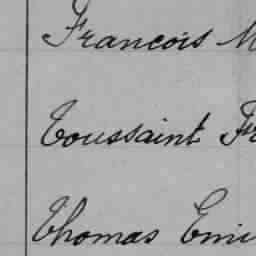 Francois M
Toussaint Fr
Thomas Emi